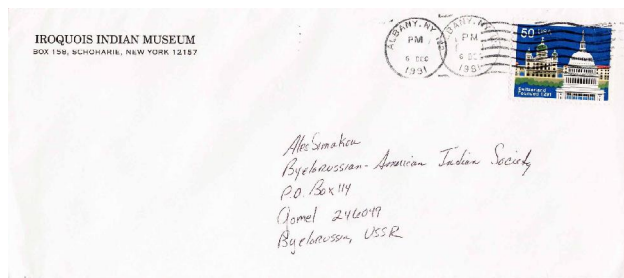 IROQUOIS INDIAN MUSEUM
BOX 158, SCHOHARIE, NEW YORK 12157
ALBANY, NY
PM
6 DEC
1991
ALBANY, NY
PM
6 DEC
1991
50 USA
Switzerland
Founded 1291
Ales Simakou
Byelorussian-American Indian Society
P.O. Box 114
Gomel 246049
Byelorussia, USSR